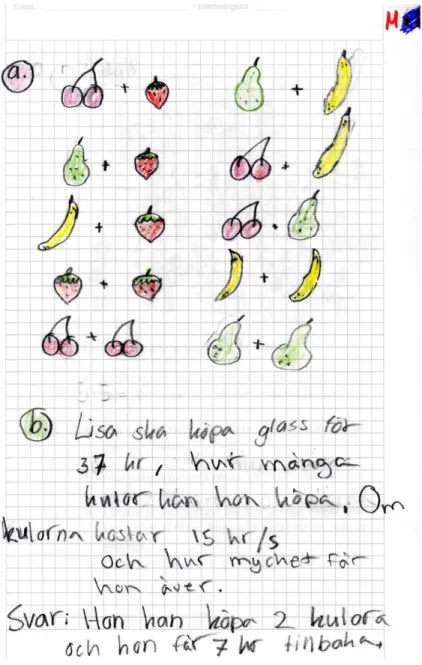 M
a.
+ +
+ +
+ +
+ +
+ +
b. Lisa ska köpa glass för
37 kr, hur många
kulor kan hon köpa. Om
kulorna kostar 15 kr/s
Och hur mycket får
hon över.
Svar: Hon kan köpa 2 kulora
och hon får 7 kr tillbaka.